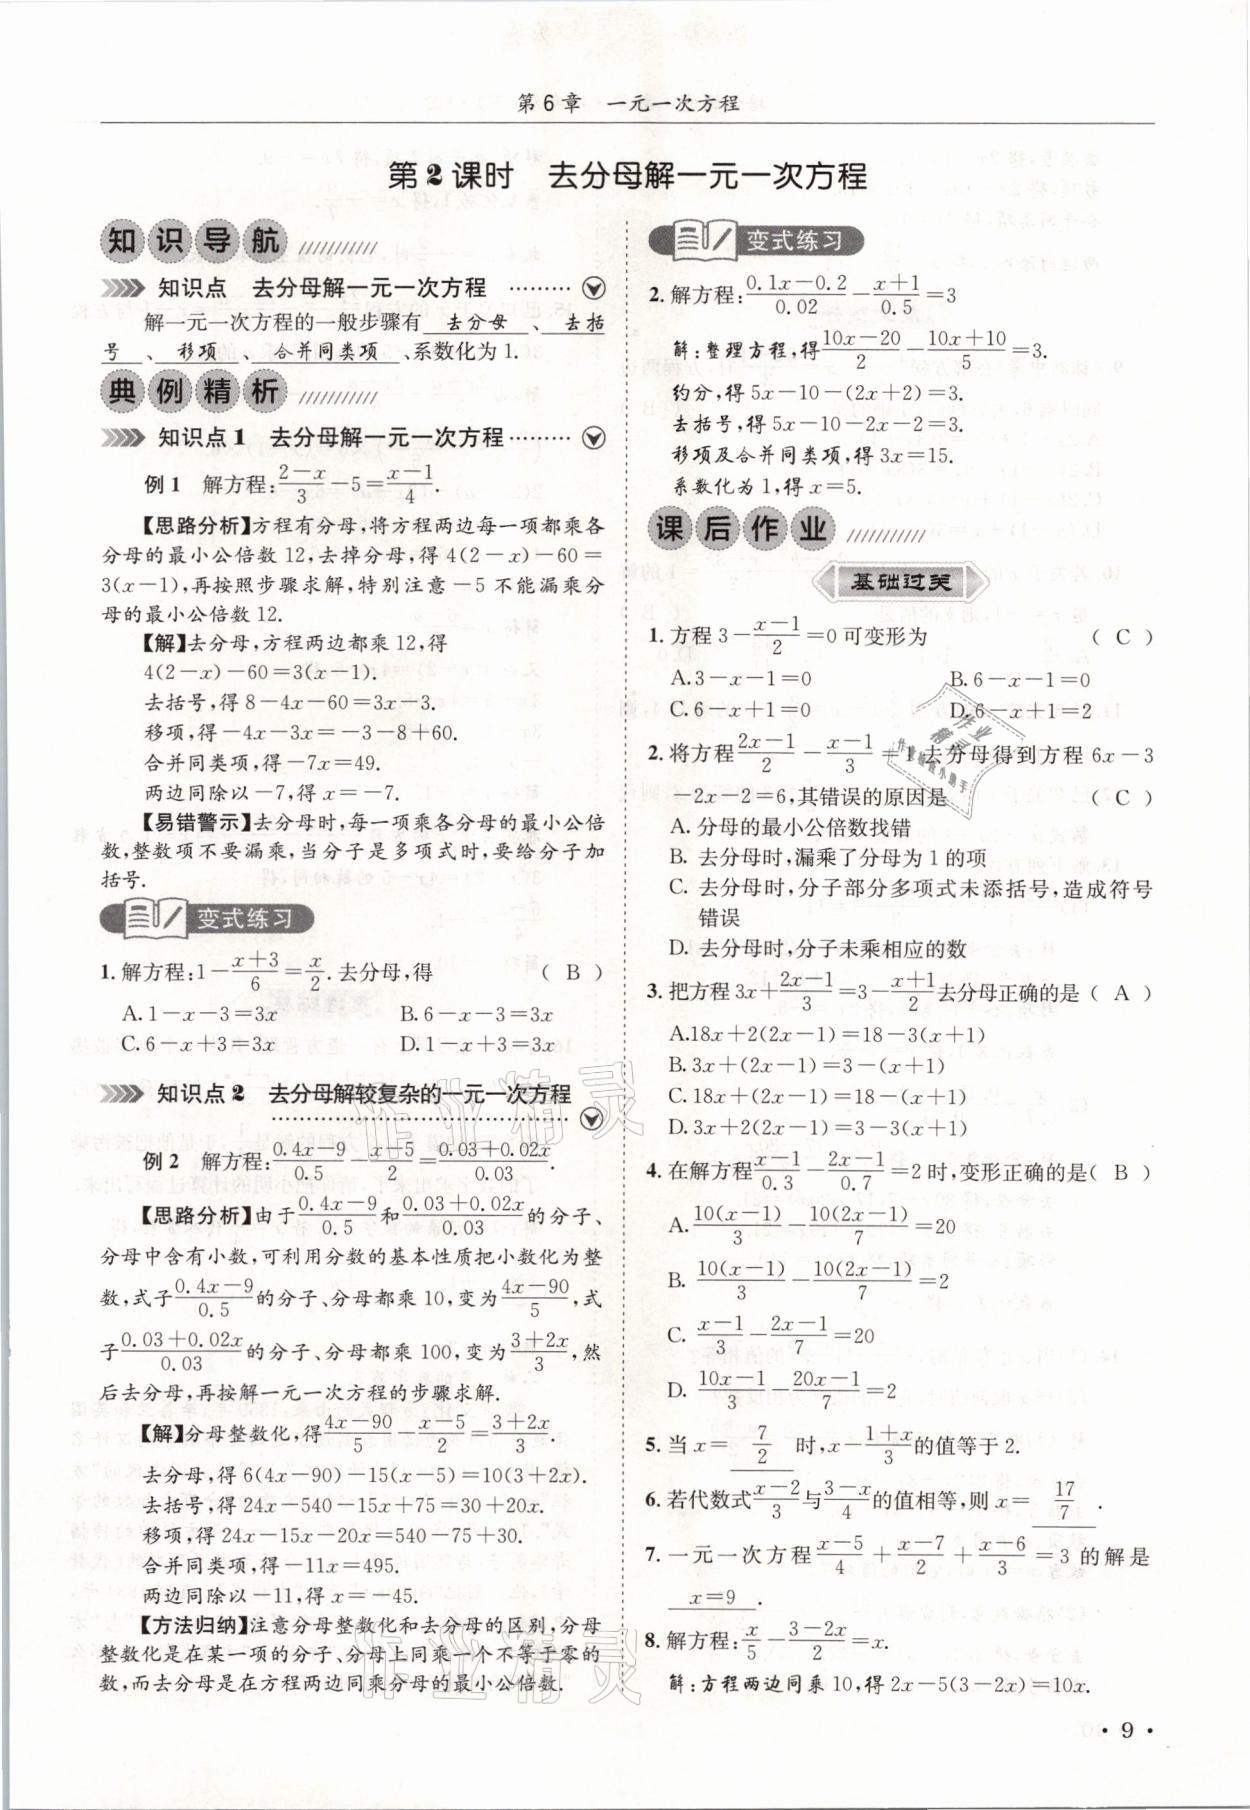 第6章 一元一次方程
第2课时 去分母解一元一次方程
知识导航
知识点 去分母解一元一次方程 ………
解一元一次方程的一般步骤有 去分母 、 去括
号 、 移项 、 合并同类项 、系数化为 1.
典例精析
知识点1 去分母解一元一次方程………
例1 解方程:(2-x)/3-5=(x-1)/4.
【思路分析】方程有分母,将方程两边每一项都乘各
分母的最小公倍数 12,去掉分母,得 4(2-x)-60=
3(x-1),再按照步骤求解,特别注意 -5 不能漏乘分
母的最小公倍数 12.
【解】去分母,方程两边都乘 12,得
4(2-x)-60=3(x-1).
去括号,得 8-4x-60=3x-3.
移项,得-4x-3x=-3-8+60.
合并同类项,得-7x=49.
两边同除以-7,得 x=-7.
【易错警示】去分母时,每一项乘各分母的最小公倍
数,整数项不要漏乘,当分子是多项式时,要给分子加
括号.
变式练习
1.解方程:1-(x+3)/6=x/2.去分母,得 ( B )
A.1-x-3=3x B.6-x-3=3x
C.6-x+3=3x D.1-x+3=3x
知识点2 去分母解较复杂的一元一次方程
………………………………
例2 解方程:(0.4x-9)/0.5-(x-5)/2=(0.03+0.02x)/0.03.
【思路分析】由于(0.4x-9)/0.5和(0.03+0.02x)/0.03的分子、
分母中含有小数,可利用分数的基本性质把小数化为整
数,式子(0.4x-9)/0.5的分子、分母都乘 10,变为(4x-90)/5,式
子(0.03+0.02x)/0.03的分子、分母都乘 100,变为(3+2x)/3,然
后去分母,再按解一元一次方程的步骤求解.
【解】分母整数化,得(4x-90)/5-(x-5)/2=(3+2x)/3.
去分母,得 6(4x-90)-15(x-5)=10(3+2x).
去括号得 24x-540-15x+75=30+20x.
移项,得 24x-15x-20x=540-75+30.
合并同类项,得-11x=495.
两边同除以-11,得 x=-45.
【方法归纳】注意分母整数化和去分母的区别,分母
整数化是在某一项的分子、分母上同乘一个不等于零的
数,而去分母是在方程两边同乘分母的最小公倍数.
变式练习
2.解方程:(0.1x-0.2)/0.02-(x+1)/0.5=3
解:整理方程,得(10x-20)/2-(10x+10)/5=3.
约分,得 5x-10-(2x+2)=3.
去括号,得 5x-10-2x-2=3.
移项及合并同类项,得 3x=15.
系数化为 1,得 x=5.
课后作业
基础过关
1.方程 3-(x-1)/2=0 可变形为 ( C )
A.3-x-1=0 B.6-x-1=0
C.6-x+1=0 D.6-x+1=2
2.将方程(2x-1)/2-(x-1)/3=1 去分母得到方程 6x-3
-2x-2=6,其错误的原因是 ( C )
A. 分母的最小公倍数找错
B. 去分母时,漏乘了分母为 1 的项
C. 去分母时,分子部分多项式未添括号,造成符号
错误
D. 去分母时,分子未乘相应的数
3.把方程 3x+(2x-1)/3=3-(x+1)/2去分母正确的是 ( A )
A.18x+2(2x-1)=18-3(x+1)
B.3x+(2x-1)=3-(x+1)
C.18x+(2x-1)=18-(x+1)
D.3x+2(2x-1)=3-3(x+1)
4.在解方程(x-1)/0.3-(2x-1)/0.7=2 时,变形正确的是( B )
A.10(x-1)/3-10(2x-1)/7=20
B. 10(x-1)/3-10(2x-1)/7=2
C. (x-1)/3-(2x-1)/7=20
D. (10x-1)/3-(20x-1)/7=2
5.当 x= 7/2 时,x-(1+x)/3的值等于 2.
6.若代数式(x-2)/3与(3-x)/4的值相等,则 x= 17/7 .
7.一元一次方程(x-5)/4+(x-7)/2+(x-6)/3=3 的解是
x=9 .
8.解方程:x/5-(3-2x)/2=x.
解:方程两边同乘 10,得 2x-5(3-2x)=10x.
· 9 ·
作业精灵
作业精灵
作业
精灵